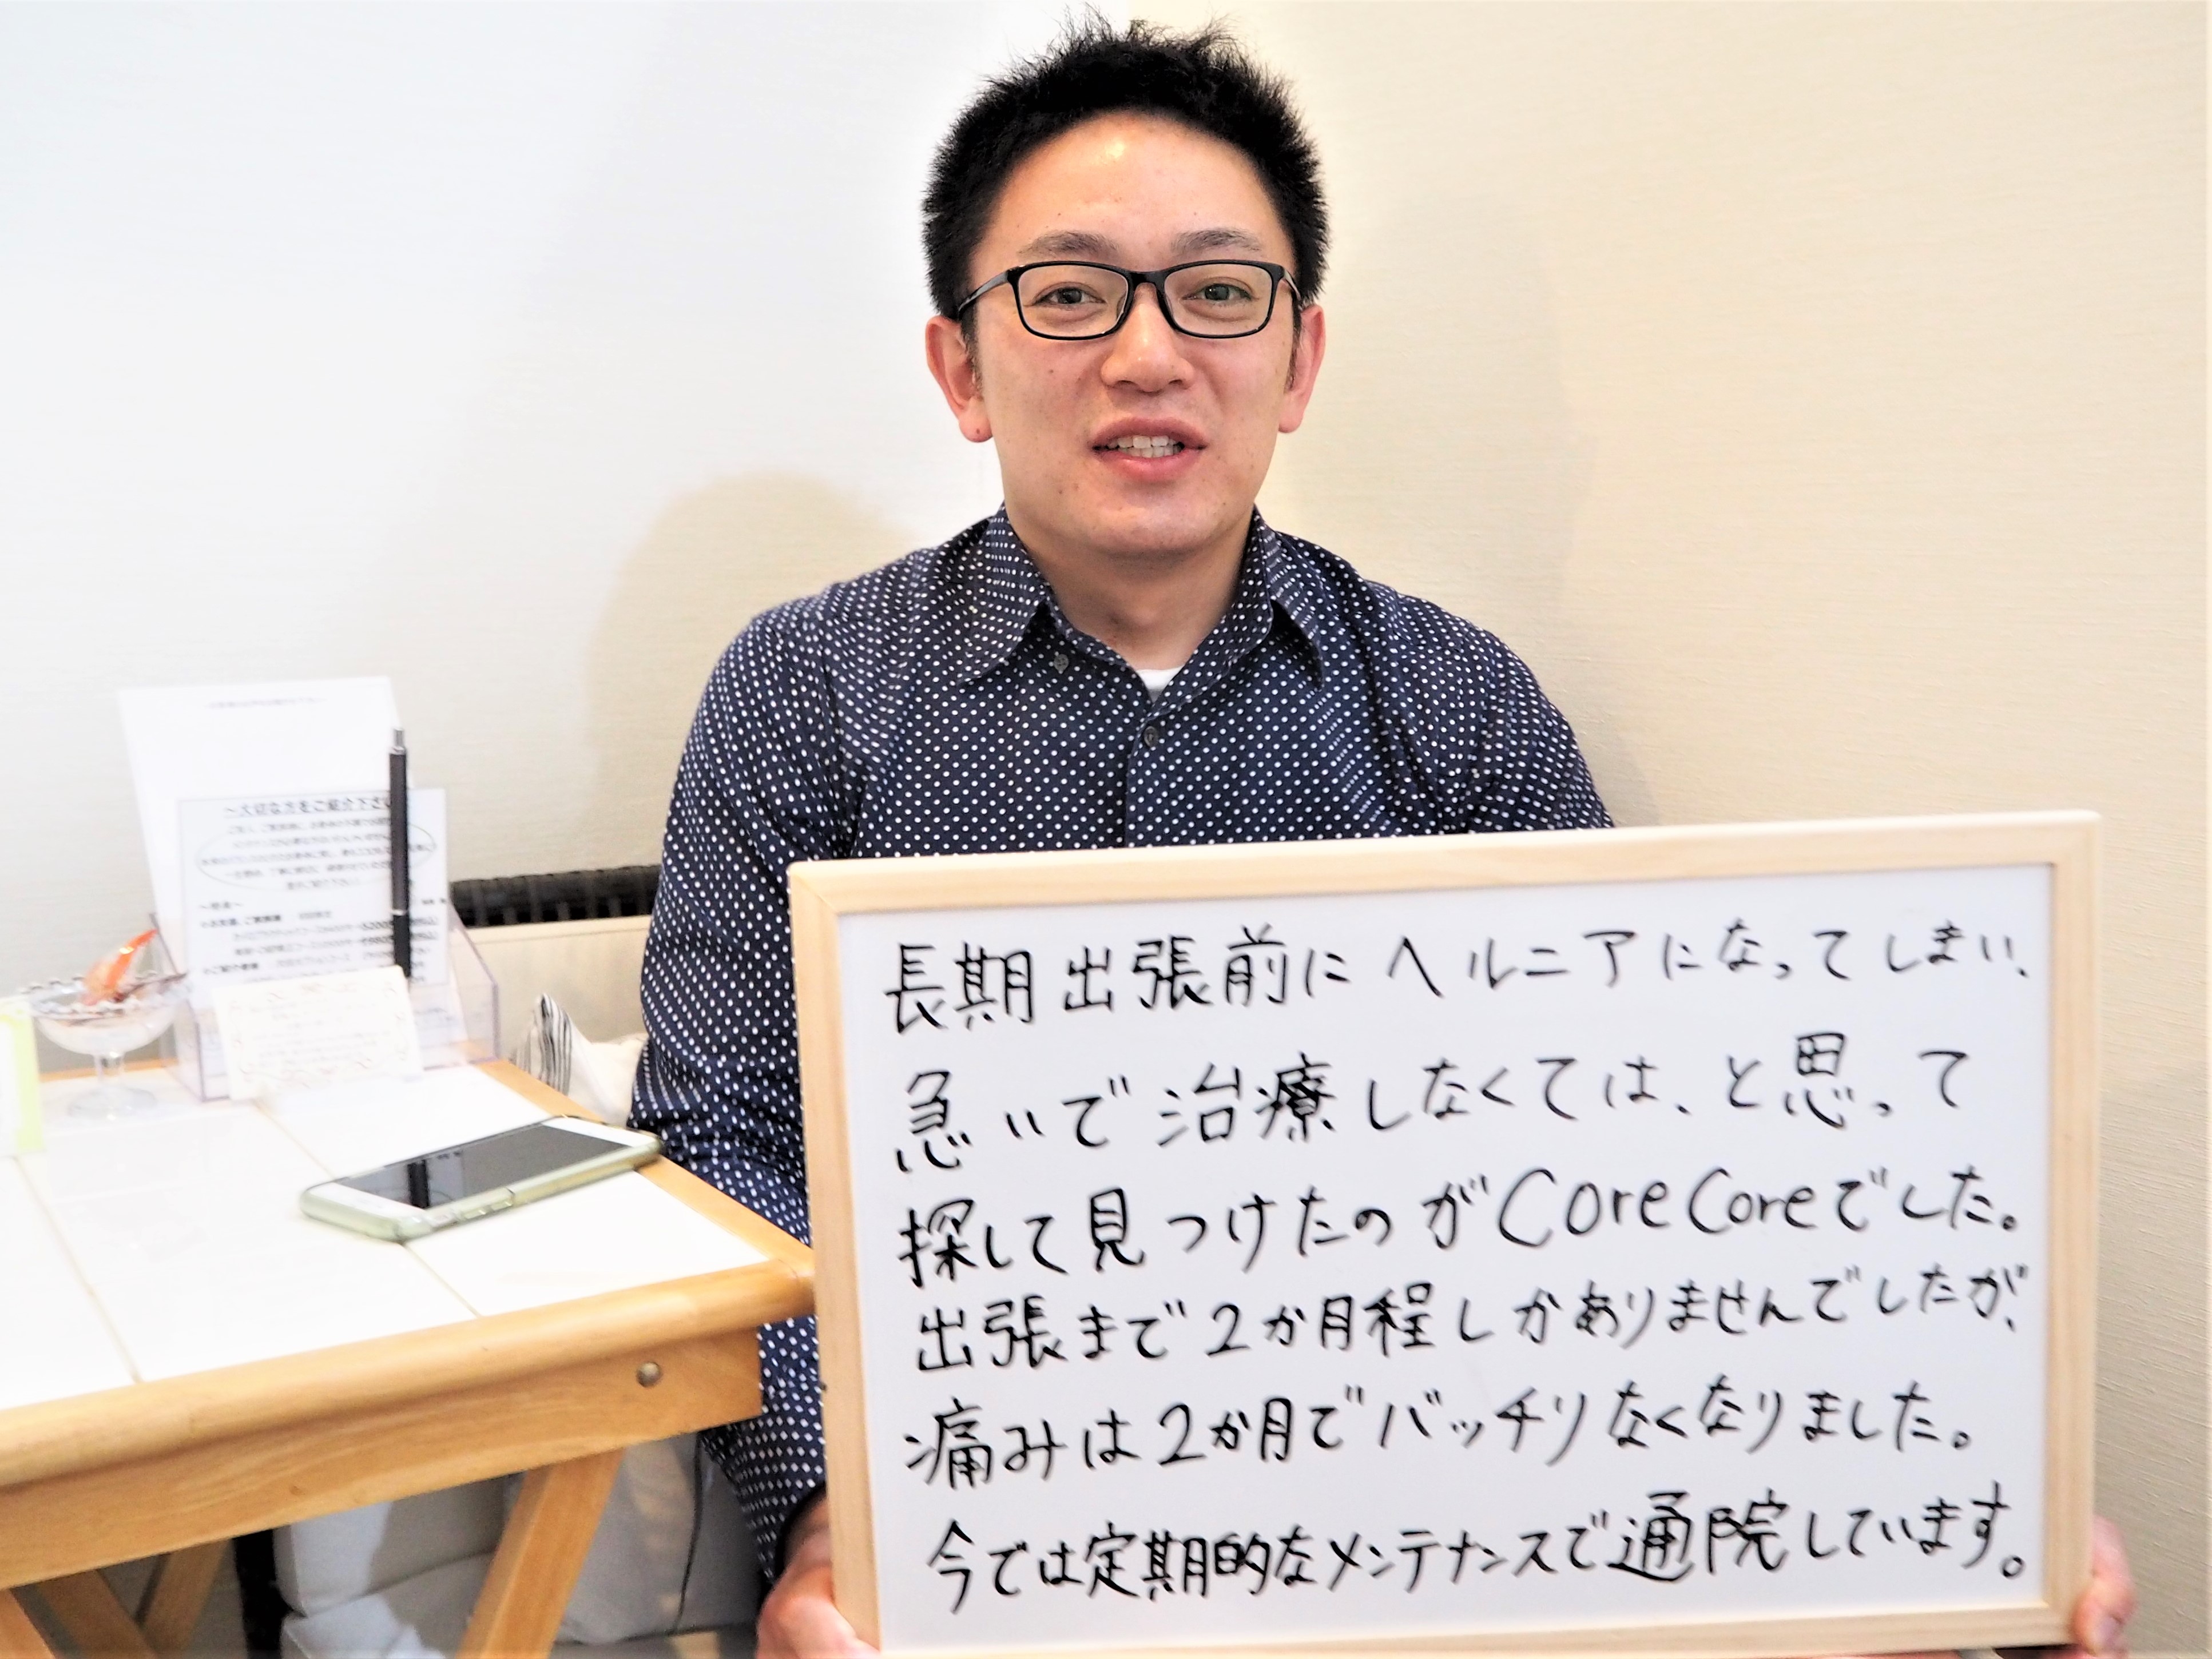 長期出張前にヘルニアになってしまい、
急いで治療しなくては、と思って
探して見つけたのがCoreCoreでした。
出張まで2か月程しかありませんでしたが、
痛みは2か月でバッチリなくなりました。
今では定期的なメンテナンスで通院しています。
～大切な方をご紹介下さい